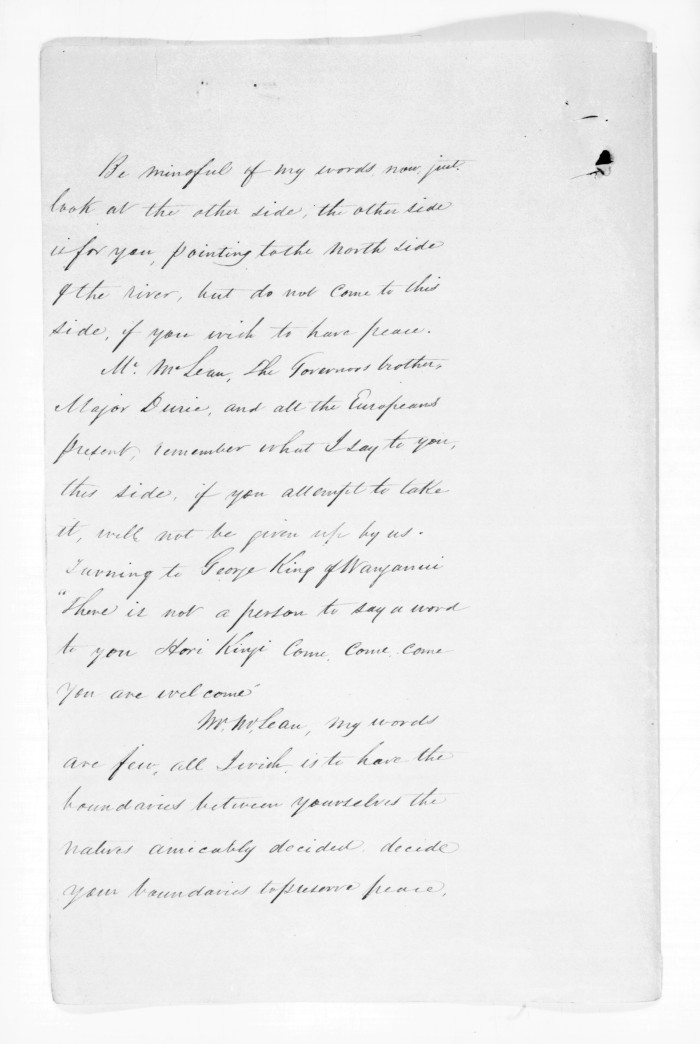 Be mindful of my words, now, just.
look at the other side; the other side
is for you, pointing to the North side
of the river, but do not come to this
side, if you wish to have peace.
Mr. McLean, The Governors brother,
Major Durie, and all the Europeans
present, remember what I say to you,
this side, if you attempt to take
it, will not be given up by us.
Turning to George King of Wanganui
"There is not a person to say a word
to you Hori Kingi Come, Come, come
you are welcome"
Mr. McLean, my words
are few, all I wish, is to have the
boundaries between yourselves the
natives amicably decided. decide
your boundaries to preserve peace.